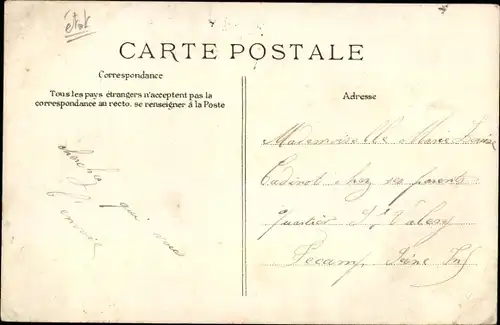 étok
CARTE POSTALE
Correspondance
Tous les pays étrangers n'acceptent pas la
correspondance au recto. se renseigner à la Poste
cherchez
qui vous
l'envoie
Adresse
Mademoiselle Marie Louise
Cadinot chez ses parents
quartier St Valery
Fecamp Seine Inf